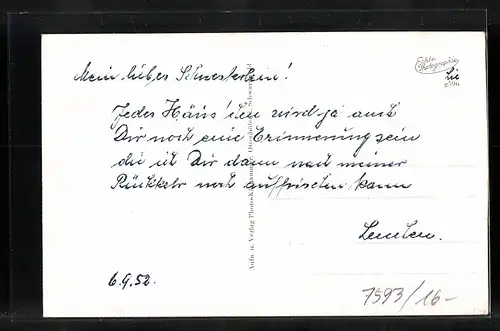 Mein liebes Schwesterlein!
Jedes Häus'chen wird ja auch
Dir noch eine Erinnerung sein
die ich Dir dann nach meiner
Rückkehr noch auffrischen kann
6.9.52.
Echte Photographie
Aufn. u. Verlag Photo-
Schwarzwald
7593/16-